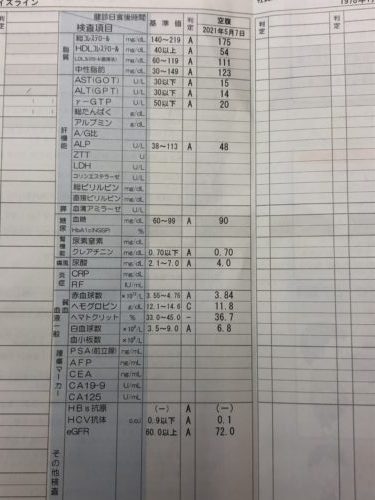 イズライン
健診日食後時間 空腹
検査項目 基準値 判定 2021年5月7日
脂質
総コレステロール mg/dL 140~219 A 175
HDLコレステロール mg/dL 40以上 A 54
LDLコレステロール mg/dL 60~119 A 111
中性脂肪 mg/dL 30~149 A 123
肝機能
AST(GOT) U/L 30以下 A 15
ALT(GPT) U/L 30以下 A 14
γ-GTP U/L 50以下 A 20
総たんぱく g/dL
アルブミン g/dL
A/G比
ALP U/L 38~113 A 48
ZTT U
LDH U/L
コリンエステラーゼ U/L
総ビリルビン mg/dL
直接ビリルビン mg/dL
血清アミラーゼ U/L
糖尿
血糖 mg/dL 60~99 A 90
HbA1c(NGSP) %
腎機能
尿素窒素 mg/dL
クレアチニン mg/dL 0.70以下 A 0.70
痛風 尿酸 mg/dL 2.1~7.0 A 4.0
炎症
CRP mg/dL
RF IU/mL
貧血
血液一般
赤血球数 3.55~4.76 A 3.84
ヘモグロビン g/dL 12.1~14.6 C 11.8
ヘマトクリット % 33.0~45.0 - 36.7
白血球数 3.5~9.0 A 6.8
血小板数
腫瘍マーカー
PSA(前立腺) ng/mL
AFP ng/mL
CEA ng/mL
CA19-9 U/mL
CA125 U/mL
その他検査
HBs抗原 (-) A (-)
HCV抗体 c.o.i 0.9以下 A 0.1
eGFR 60.0以上 A 72.0
判定